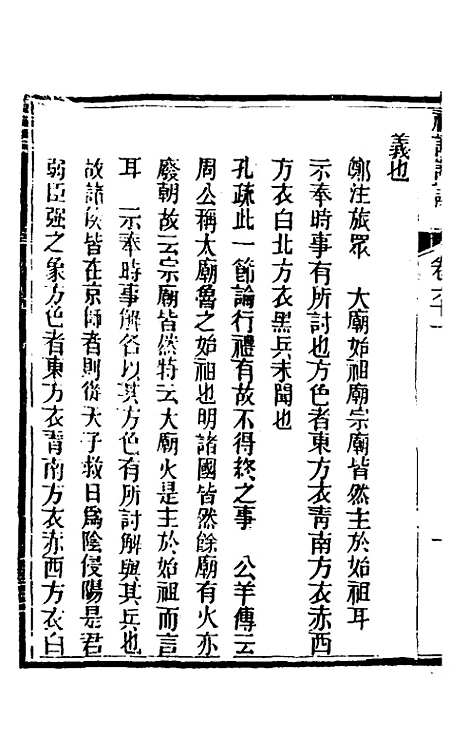 義也
鄭注旅眾　大廟始祖廟宗廟皆然主於始祖耳
示奉時事有所討也方色者東方衣青南方衣赤西
方衣白北方衣黑兵未聞也
孔疏此一節論行禮有故不得終之事　公羊傳云
周公稱大廟魯之始祖也明諸國皆然餘廟有火亦
廢朝故云宗廟皆然特云大廟火是主於始祖而言
耳　示奉時事解各以其方色有所討解與其兵也
故諸侯皆在京師者則從天子救日為陰侵陽是君
弱臣強之象方色者東方衣青南方衣赤西方衣白